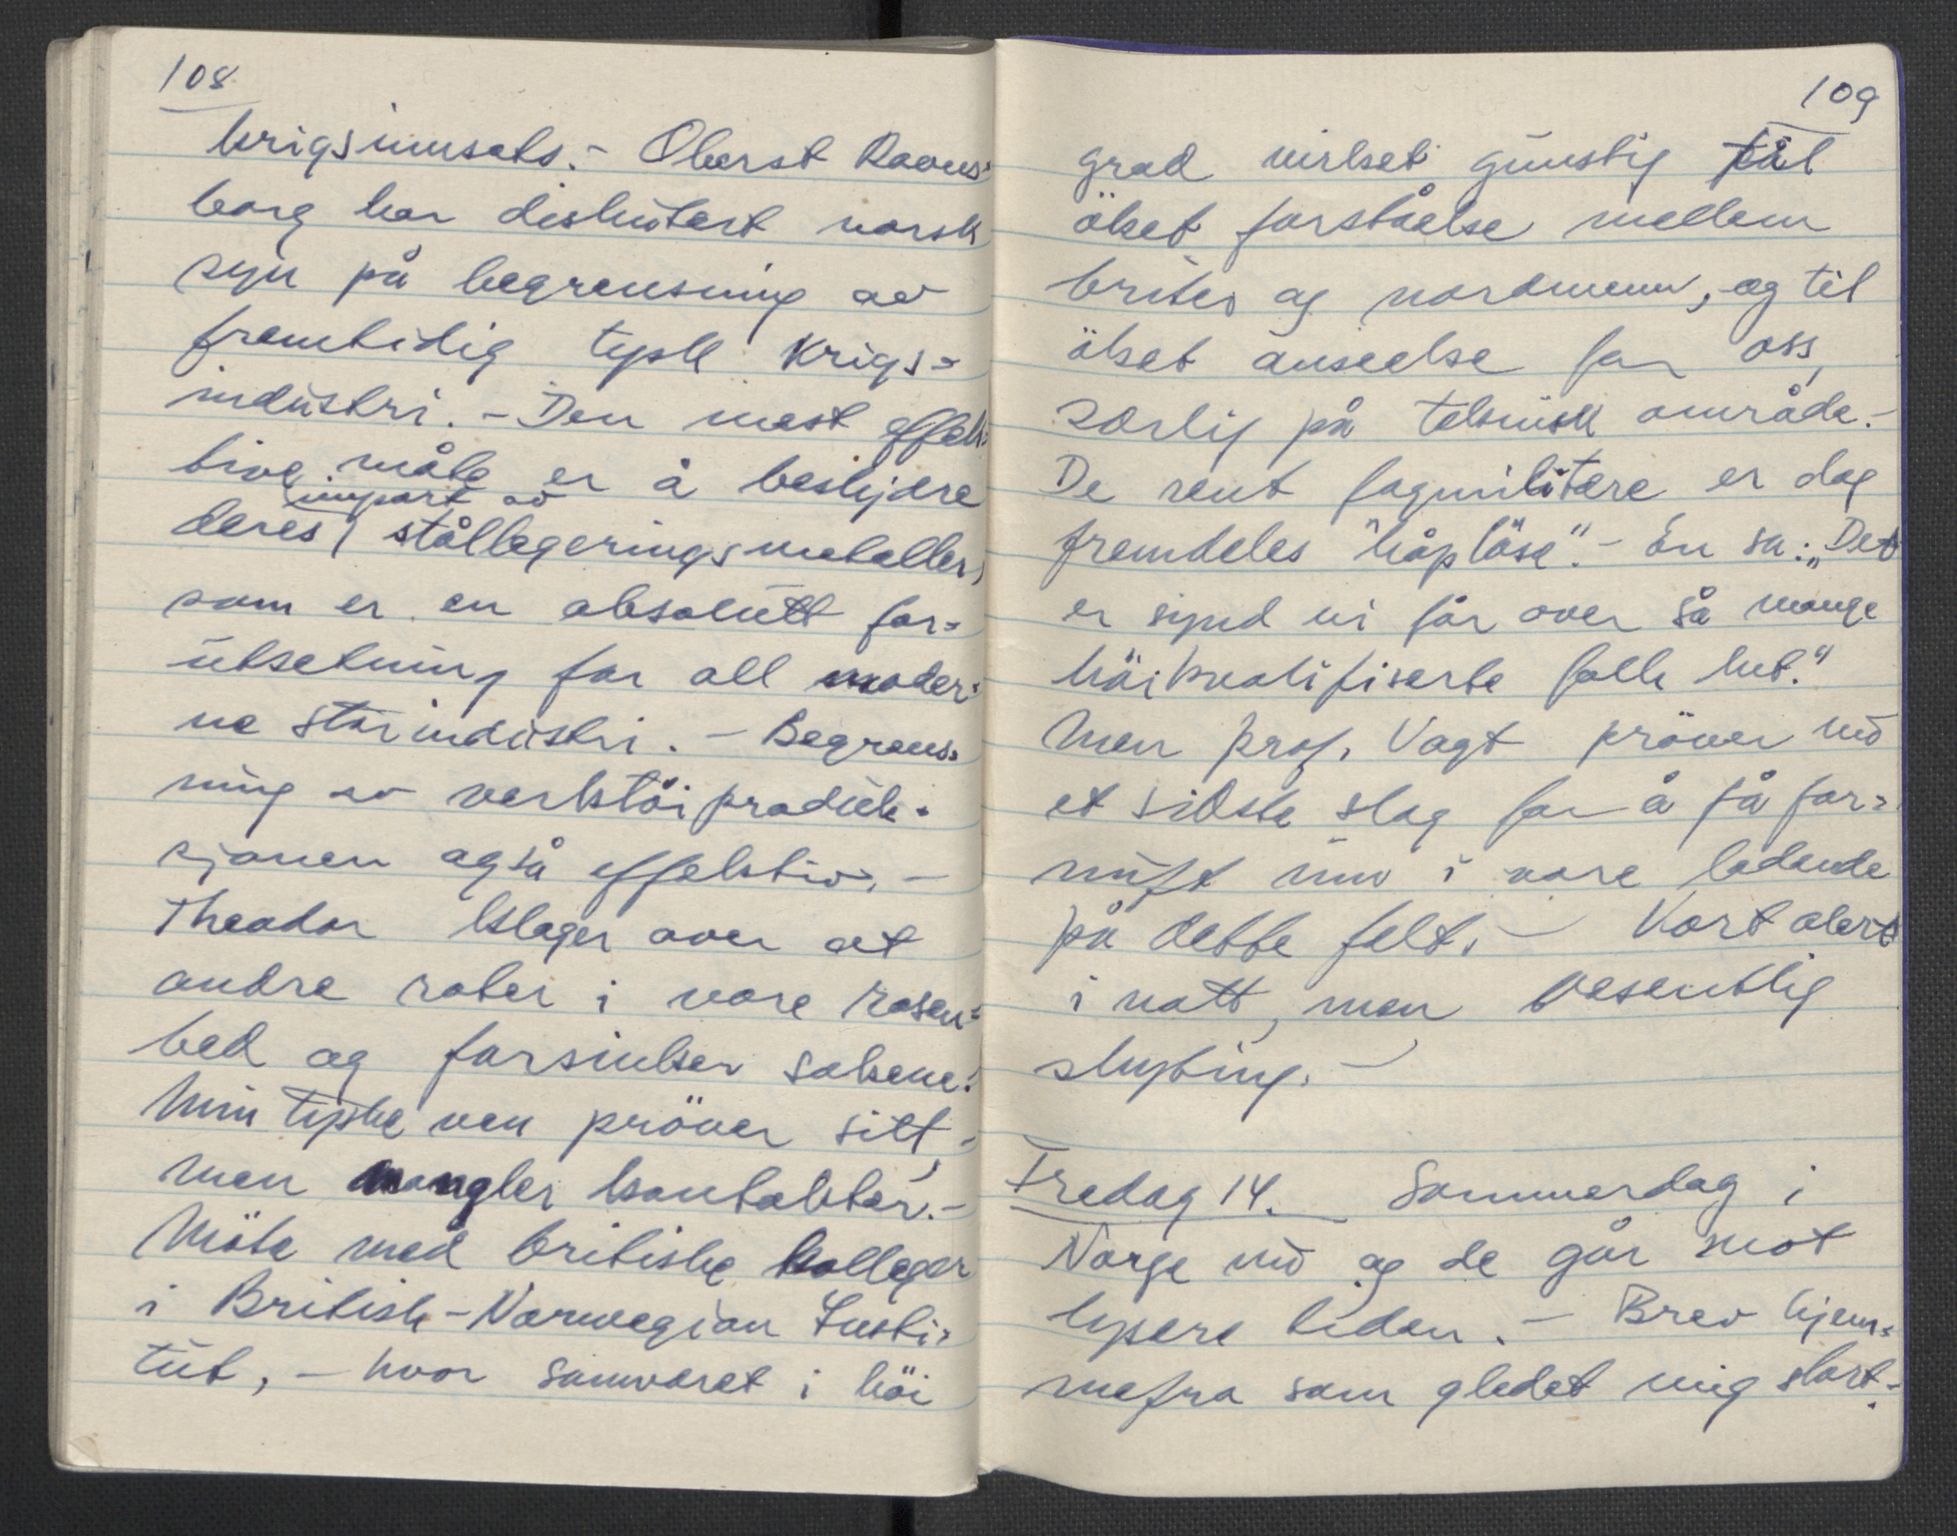 108
krigsinnsats. - Oberst Ravns-
borg har diskutert norsk
syn på begrensning av
fremtidig tysk krigs-
industri. - Den mest effek-
tive måte er å beskjære
import av
deres stållegeringsmetaller,
som er en absolutt for-
utsetning for all moder-
ne storindustri. - Begrens-
ning av verktöiproduk-
sjonen også effektiv. -
Theodor klager over at
andre roter i vore rosen-
bed og forsinker sakene.
Min tyske ven pröver sitt,
men mangler kontakter. -
Möte med britiske kolleger
i British-Norwegian Insti-
tut, - hvor samværet i höi
109
grad virket gunstig til
öket forståelse mellem
briter og nordmenn, og til
öket anseelse for oss,
særlig på teknisk område. -
De rent fagmilitære er dog
fremdeles "håplöse". - Én sa: „Det
er synd vi får over så mange
höikvalifiserte folk hit."
Men prof. Vogt pröver nu
et sidste slag for å få for-
nuft inn i vore ledende
på dette felt. - Kort alert
i natt, men vesentlig
skyting. -
Fredag 14. Sommerdag i
Norge nu og de går mot
lysere tider. - Brev hjem-
mefra som gledet mig stort. -